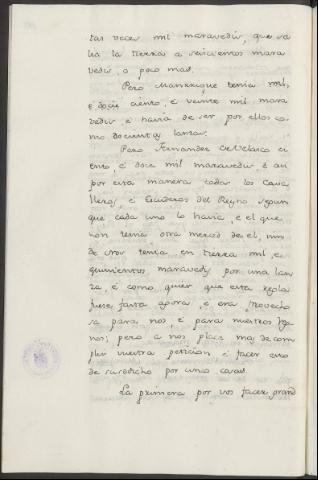 tas veces mil maravedis, que sa
lia la tierra a seiscientos mara
vedis, o poco mas.
Pero Manrrique tenia mil,
e doce ciento, e veinte mil mara
vedis e havia de ser por ellos co
mo docientas lanzas.
Pero Fernandez de Velasco ci
ento, e doce mil maravedis e au
por esta manera todos los Cava
lleros, e Escuderos del Reyno segun
que cada uno lo havia, e el que
non tenia otra merced de el, nin
de vos tenia en tierra mil, e
quinientos maravedis por una lan
za, e como quier que esta regla
fuese fasta agora, e era provecho
sa para nos, e para nuestros Reg
nos; pero a nos place mas de com
plir vuestra peticion e facer eso
de susodicho por unas cosas.
La primera por vos facer grand